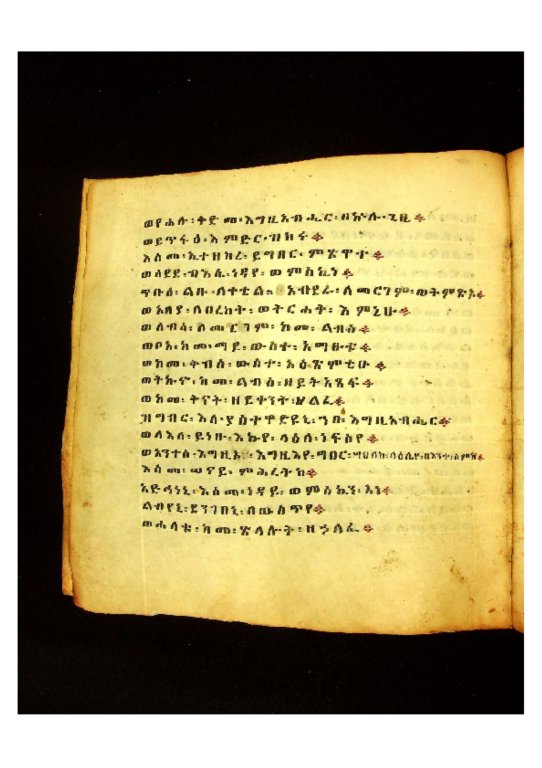 ወየሀሉ፡ቅድመ፡እግዚአብሔር፡በኵሉ፡ጊዜ።
ወይጥፋዕ፡እምድር፡ዝክሩ።
እስመ፡ኢተዘከረ፡ይግበር፡ምጽዋተ።
ወሰደደ፡ብእሴ፡ነዳየ፡ወምስኪን።
ጥቡዕ፡ልቡ፡ለቀቲል። አብደረ፡ለመርገም፡ወትምጽኦ።
ወአበያ፡ለበረከት፡ወትርሐቅ፡እምኔሁ።
ወለብሳ፡ለመርገም፡ከመ፡ልብስ።
ወቦአ፡ከመ፡ማይ፡ውስተ፡አማዑቱ።
ወከመ፡ቅብዕ፡ውስተ፡አዕጽምቲሁ።
ወትኩኖ፡ከመ፡ልብስ፡ዘይትአጸፍ።
ወከመ፡ቅናት፡ዘይቀንት፡ዘልፈ።
ዝግብር፡እለ፡ያስተዋድዩኒ፡ኀበ፡እግዚአብሔር።
ወለእለ፡ይነቡ፡እኩየ፡ላዕለ፡ነፍስየ።
ወአንተሰ፡እግዚኦ፡እግዚእየ፡ግበር፡ሣህለከ፡ላዕሌየ፡በእንተ፡ስምከ።
እስመ፡ሠናይ፡ምሕረትከ።
አድኅነኒ፡እስመ፡ነዳይ፡ወምስኪን፡አነ።
ልብየኒ፡ደንገፀኒ፡በውስጥየ።
ወሐለቁ፡ከመ፡ጽላሎት፡ዘኃለፈ።